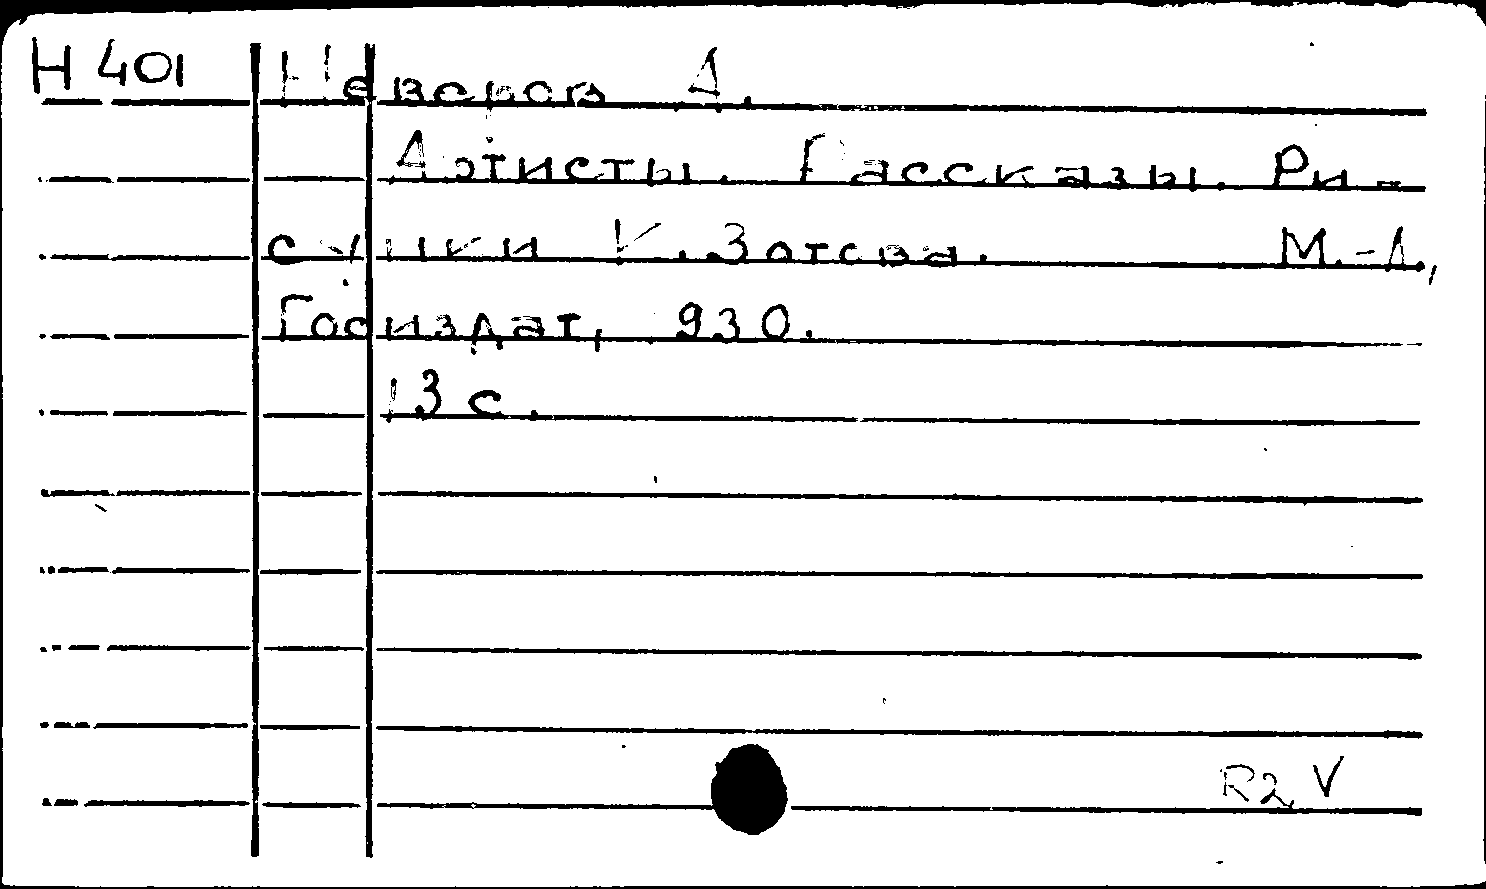 Н 401 Неверов А.
Артисты. Рассказы. Ри-
сунки К. Зотова. М.-Л.,
Госиздат, 930.
13 с.
R2 V